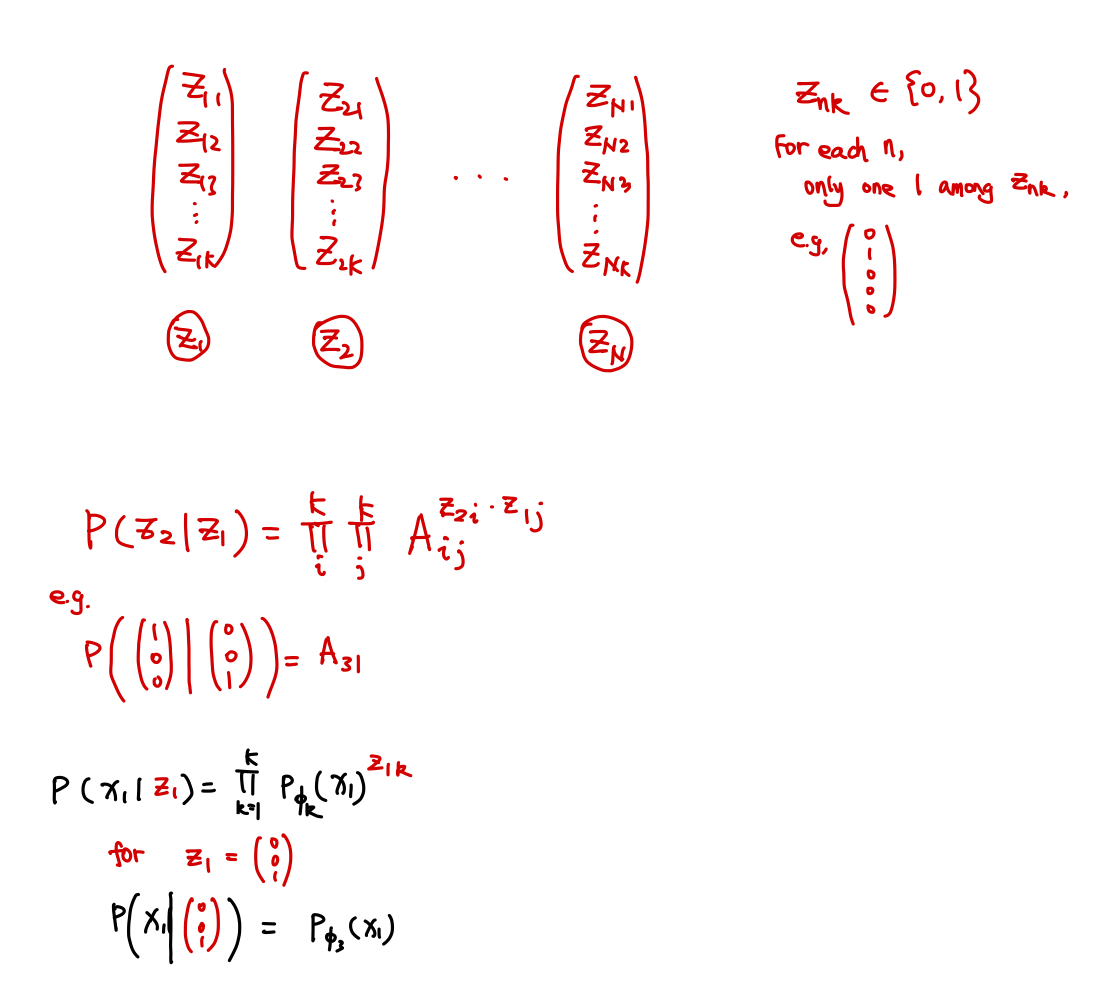 (Z_11 Z_12 Z_13 ⋮ Z_1K) (Z_21 Z_22 Z_23 ⋮ Z_2K) ... (Z_N1 Z_N2 Z_N3 ⋮ Z_NK)
Z_1 Z_2 Z_N
Z_nk ∈ {0,1}
For each n,
only one 1 among Z_nk.
e.g, (0 1 0 0 0)
P(Z_2|Z_1) = ∏_i^K ∏_j^K A_ij^{Z_2i · Z_1j}
e.g.
P((1 0 0)|(0 0 1)) = A_31
P(x_1|Z_1) = ∏_{k=1}^K P_{ϕ_k}(x_1)^{Z_1k}
for Z_1 = (0 0 1)
P(x_1|(0 0 1)) = P_{ϕ_3}(x_1)